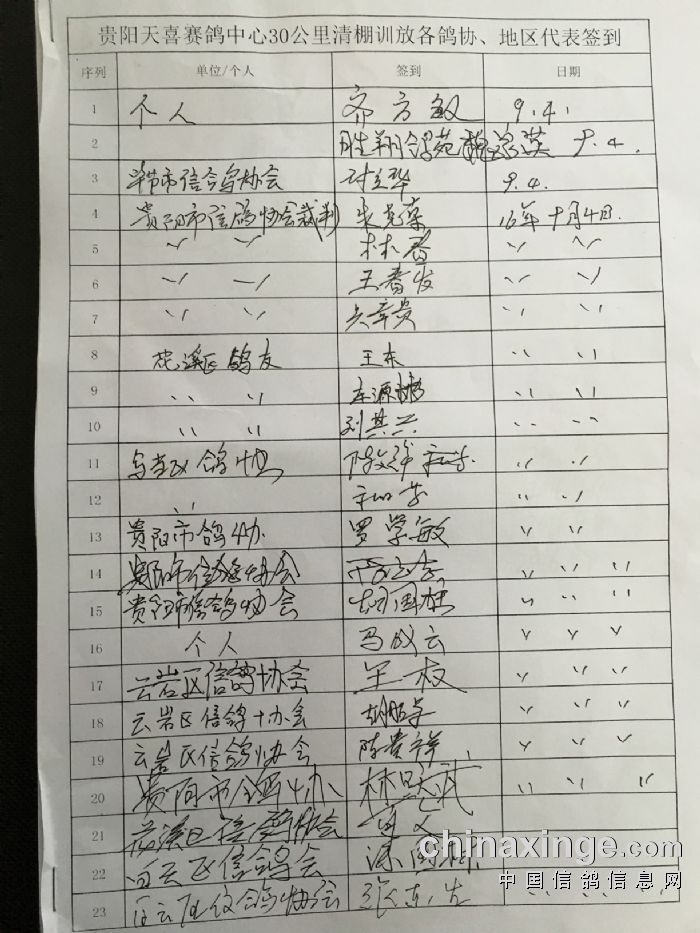 贵阳天喜赛鸽中心30公里清棚训放各鸽协、地区代表签到
序列 单位/个人 签到 日期
1 个人 齐方敏 9.4.
2 胜翔鸽苑 9.4.
3 毕节市信鸽协会 9.4.
4 贵阳市信鸽协会裁判 朱克荣 16年9月4日.
5 〃 〃 林春 〃 〃
6 〃 〃 王春发 〃 〃
7 〃 〃 〃 〃
8 花溪区鸽友 王东 〃 〃
9 〃 〃 〃 〃
10 〃 〃 刘其兴 〃 〃
11 乌当区鸽协 〃 〃
12 〃 〃 〃
13 贵阳市鸽协. 罗学敏 〃 〃
14 贵阳市信鸽协会 〃 〃 〃
15 贵阳市信鸽协会 〃 〃 〃
16 个人 马成云 〃 〃 〃
17 云岩区信鸽协会 王权 〃 〃 〃
18 云岩区信鸽协会 〃 〃 〃
19 云岩区信鸽协会 陈贵祥 〃 〃 〃
20 贵阳市信鸽协 〃 〃 〃
21 花溪区信鸽协会
22 白云区信鸽会
23 白云区信鸽协会
chinaxinge.com
中国信鸽信息网